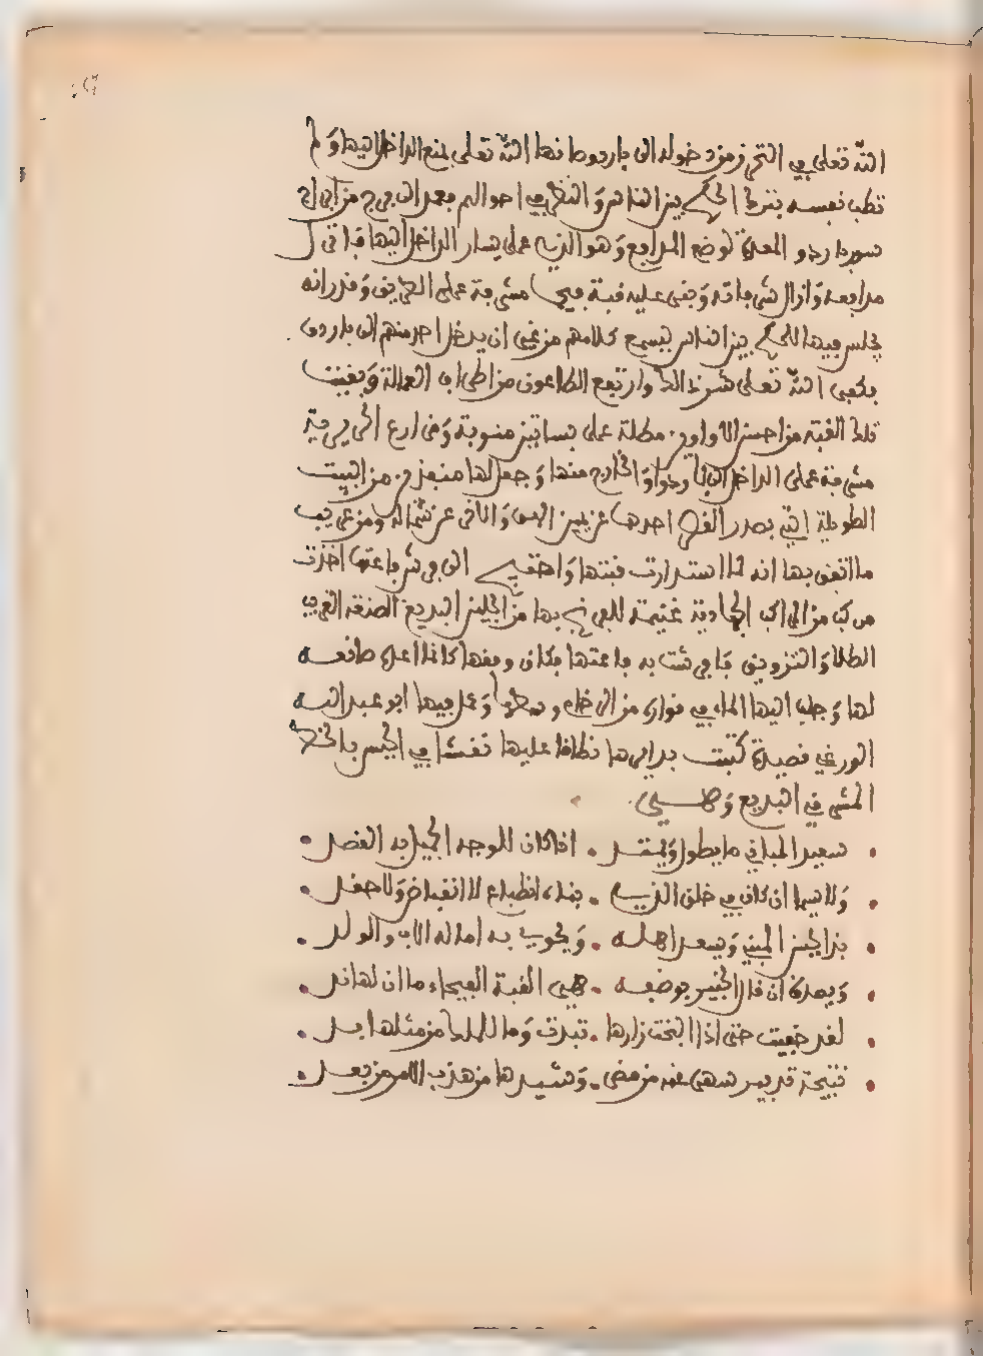 الله تعالى في التحرز من دخوله الى باردو صانها الله تعالى بمنع الداخل اليها ولم
تطب نفسه بترك الحكم بين الناس والنظر في احوالهم بعد ان خرج من
سور باردو المعدة لوضع المدافع وهو الذي على يسار الداخل اليها
مدافعه وازال شرفاته وبنى عليه قبة فيحا مشرفة على الطريق
يجلس فيها للحكم بين الناس ليسمع كلامهم من غير ان يدخل احد منهم الى باردو
فكفى الله تعالى شر ذلك وارتفع الطاعون من اطراف العمالة وبقيت
تلك القبة من احسن الاواوين مطلة على بساتين وفي
مشرفة على الداخل الى باردو والخارج منها وجعل لها منفذين من البيت
الطويلة التي بصدر احدها عن يمين والاخر عن شماله ومن غريب
ما اتفق بها انه لما استدارت قبتها الى فرش قاعتها اخذت
مركب من المراكب الجهادية غنيمة للبر بها من الجليز البديع الصنعة الغريب
الطلا والتزويق ففرشت به قاعتها فكان وفقها كانما اعده صانعه
لها وجلب اليها الماء في فوارة من الرخام وعمل فيها ابو عبد الله
الورغي قصيدة كتبت بدايرها نطاقا عليها نقشا في الجبس بالخط
المشرقي البديع وهي
سعيد المباني ما يطول ويمتد • اذا كان للوجه الجميل به القصد
ولا سيما ان كان في خلق الذي • بناه انطباع لا انقباض ولا حقد
بذا يحسن المبنى ويسعد اهله • ويحوي به اماله الاب والولد
ويصدق ان قال الخبير بوضعه • هي القبة الفيحاء ما ان لها ند
لقد خفيت حتى اذا البخت زارها • تبدت وما للملك من مثلها بد
نتيجة تدبير سهى عنه من مضى • وشيدها من هذب الامر من بعد